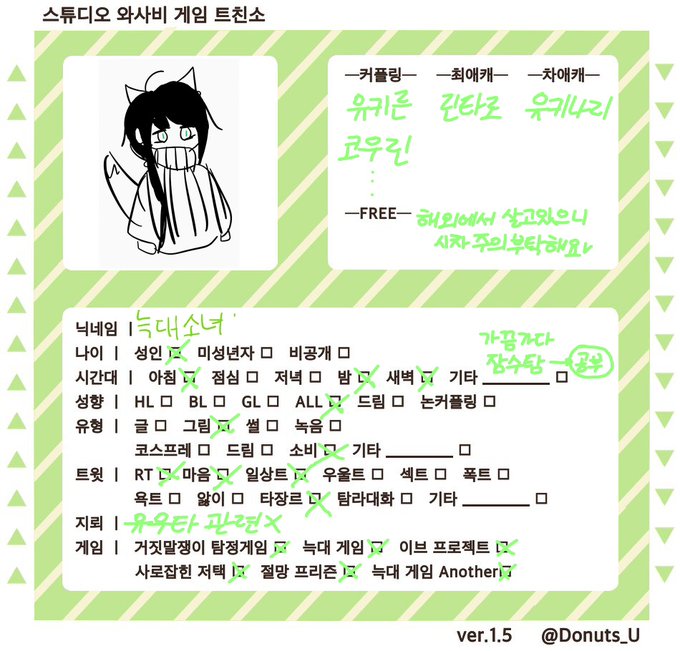 스튜디오 와사비 게임 트친소
—커플링— —최애캐— —차애캐—
유키른 린타로 유키나리
코우린
⋮
—FREE— 해외에서 살고있으니
시차 주의부탁해요
닉네임 | 늑대소녀
가끔가다
나이 | 성인 ☒ 미성년자 □ 비공개 □
잠수탐 → 공부
시간대 | 아침 ☒ 점심 □ 저녁 □ 밤 ☒ 새벽 ☒ 기타 ________ □
성향 | HL □ BL □ GL □ ALL ☒ 드림 □ 논커플링 □
유형 | 글 □ 그림 ☒ 썰 □ 녹음 □
코스프레 □ 드림 □ 소비 ☒ 기타 ________ □
트윗 | RT ☒ 마음 ☒ 일상트 ☒ 우울트 □ 섹트 □ 폭트 □
욕트 □ 앓이 □ 타장르 ☒ 탐라대화 □ 기타 ________ □
지뢰 | 유우타 관련 X
게임 | 거짓말쟁이 탐정게임 ☒ 늑대 게임 ☒ 이브 프로젝트 ☒
사로잡힌 저택 ☒ 절망 프리즌 ☒ 늑대 게임 Another ☒
ver.1.5 @Donuts_U